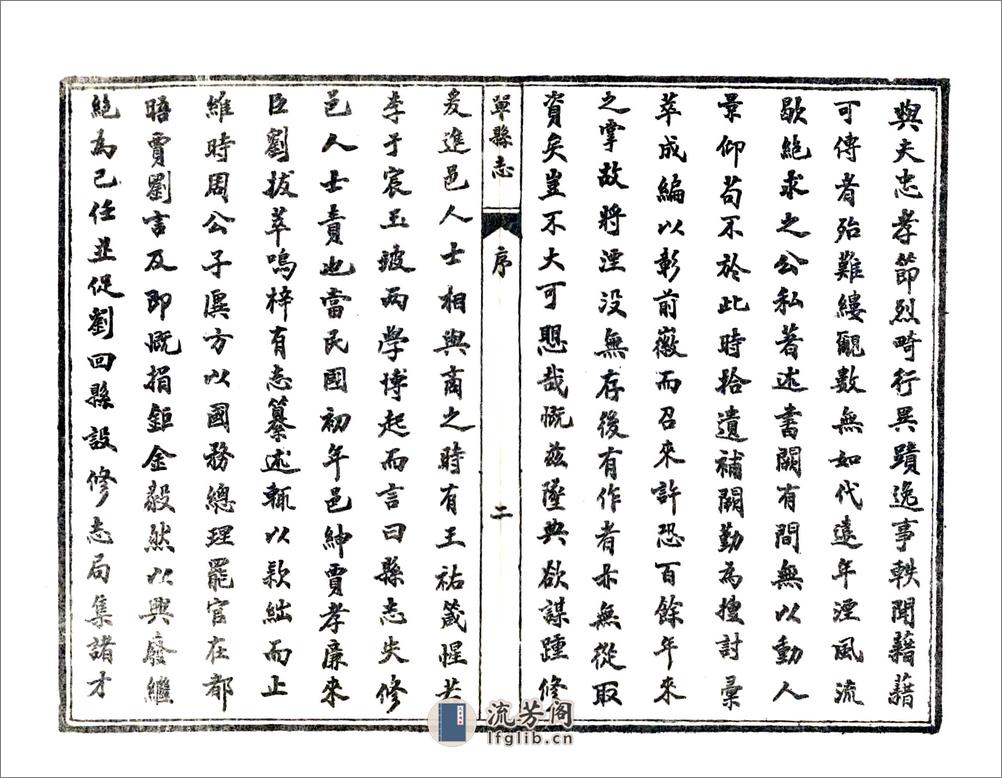 與夫忠孝節烈畸行異蹟逸事軼聞藉藉
可傳者殆難縷覼數無如代遠年湮風流
歇絕求之公私著述書闕有間無以動人
景仰苟不於此時拾遺補闕勤為搜討彙
萃成編以彰前徽而召來許恐百餘年來
之掌故將湮没無存後有作者亦無從取
資矣豈不大可恩哉慨茲墜典欲謀踵修
單縣志
序
二
爰進邑人士相與商之時有王祐箴惺
李于宸玉坡兩學博起而言曰縣志失修
邑人士責也當民國初年邑紳賈孝廉來
臣劉拔萃鳴梓有志纂述輒以款絀而止
維時周公子廙方以國務總理罷官在都
晤賈劉言及即慨捐鉅金毅然以興廢繼
絕為己任並促劉回縣設修志局集諸才
流芳阁
lfglib.cn